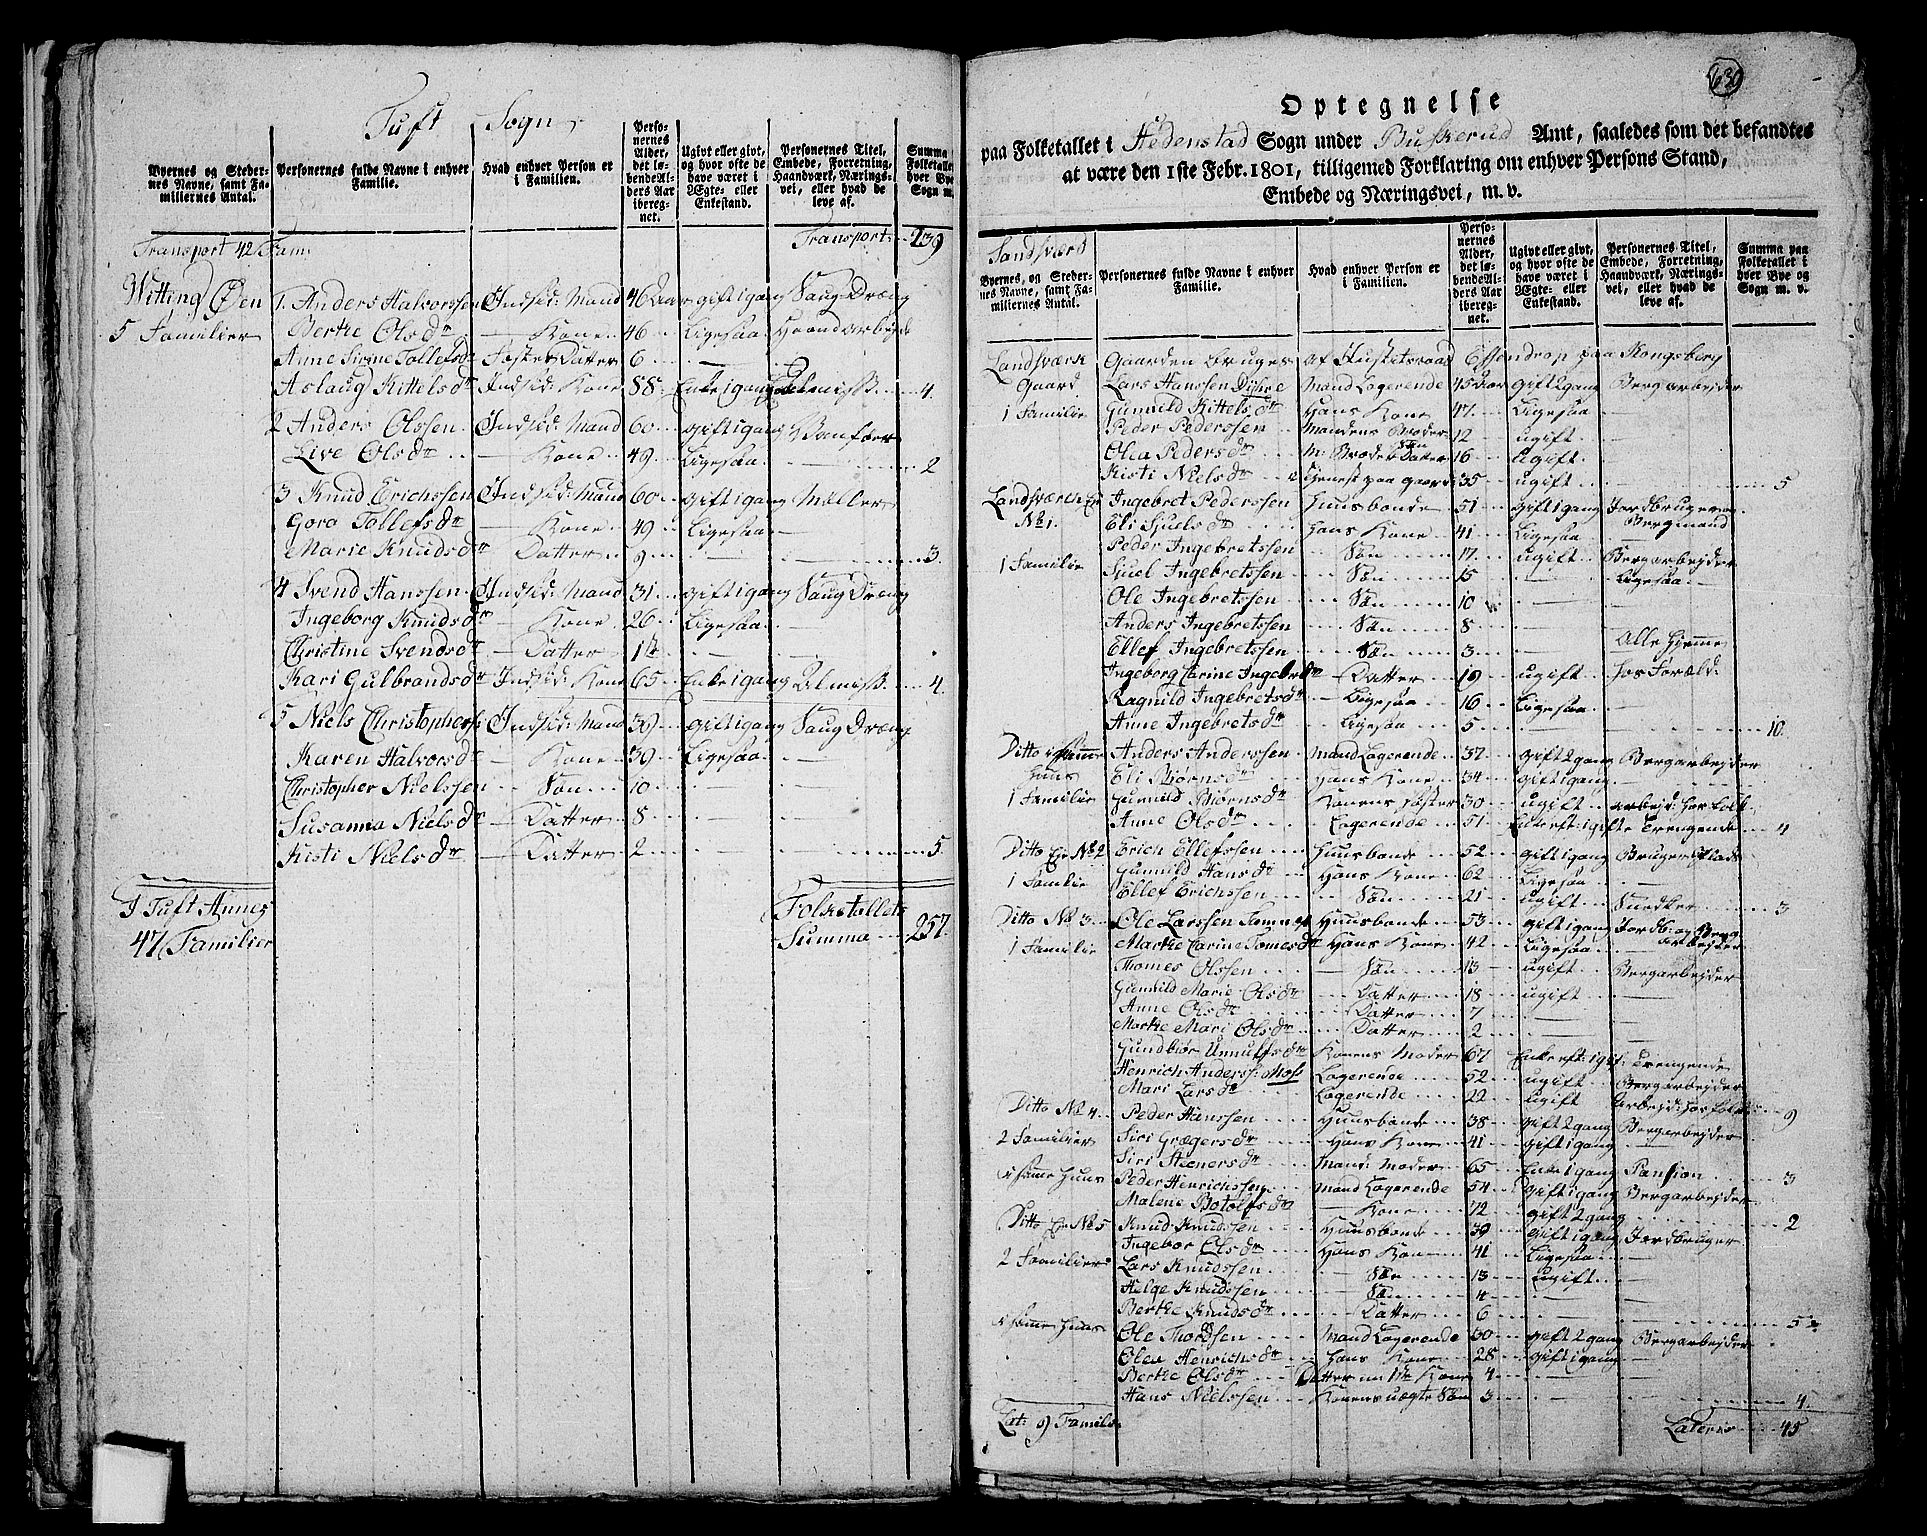 Tuft Sogn
Byernes og Stedernes Navne, samt Familiernes Antal.
Personernes fulde Navne i enhver Familie.
Hvad enhver Person er i Familien.
Personernes Alder, det løbende Alders Aar iberegnet.
Ugivt eller givt, og hvor ofte de have været i Ægte- eller Enkestand.
Personernes Titel, Embede, Forretning, Haandværk, Næringsvei, eller hvad de leve af.
Summa Folketallet hver Bye Sogn m.
Transport 42 Fam: Transport 239
Witting Øen 1. Anders Halvorssen Indsid: Mand 46 Aar gift 1 gang Saug Dræng
5 Familier Berthe Olsdr — Kone 46 Ligesaa Haandarbejde
Anne Sirine Tollefsdr Foster Datter 6 —
Aslaug Kittelsdr Indsid: Kone 88 Enke 1 gang Almisse 4.
2 Anders Olssen Indsid: Mand 60 gift 1 gang
Live Olsdr — Kone 49 Ligesaa — 2
3 Knud Erichssen Indsid: Mand 60 gift 1 gang Møller
Goro Tollefsdr — Kone 49 Ligesaa —
Marie Knudsdr — Datter 9 — 3.
4 Svend Hanssen Indsid: Mand 31 gift 1 gang Saug Dræng
Ingeborg Knudsdr — Kone 26 Ligesaa —
Christine Svendsdr — Datter 1 —
Kari Gulbrandsdr Indsid: Kone 65 Enke 1 gang Almisse 4.
5 Niels Christophers: Indsid: Mand 39 gift 1 gang Saug Dræng
Karen Halvorsdr — Kone 39 Ligesaa —
Christopher Nielssen Søn 10 —
Susanna Nielsdr — Datter 8 —
Kisti Nielsdr — Datter 2 — 5.
I Tuft Annex Folketallets
47 Familier Summa 257.
630
Optegnelse
paa Folketallet i Hedenstad Sogn under Buskerud Amt, saaledes som det befandtes
at være den 1ste Febr. 1801, tilligemed Forklaring om enhver Persons Stand,
Embede og Næringsvei, m. v.
Sandsværd
Byernes, og Stedernes Navne, samt Familiernes Antal.
Personernes fulde Navne i enhver Familie.
Hvad enhver Person er i Familien.
Personernes Alder, det løbende Alders Aar iberegnet.
Ugivt eller givt, og hvor ofte de have været i Ægte- eller Enkestand.
Personernes Titel, Embede, Forretning, Haandværk, Næringsvei, eller hvad de leve af.
Summa paa Folketallet i hver Bye og Sogn m. v.
Landsværk Gaarden bruges af Justitsraad Essendrop paa Kongsberg
Gaard Lars Hanssen Disne Mand Logerende 45 Aar gift 2 gang Bergarbejder
1 Familie Gunnild Kittelsdr Hans Kone 47 Ligesaa —
Peder Pederssen Mandens Broder Søn 12 ugift —
Olea Pedersdr M: Broder Datter 16 ugift —
Kisti Nielsdr Tjenest paa Gaard 35 ugift 5
Landsværch Ej Ingebret Pederssen Huusbonde 51 gift 1 gang Jordbruger
No 1. Eli Sjuelsdr Hans Kone 41 Ligesaa Bergmand
Peder Ingebretssen Søn 17 ugift Bergarbejder
1 Familie Sjuel Ingebretssen Søn 15 — Ligesaa
Ole Ingebretssen Søn 10 —
Anders Ingebretssen Søn 8 —
Ellef Ingebretssen Søn 3 — Alle Hjemme
Ingeborg Carine Ingebrdr Datter 19 ugift hos Foræld:
Ragnild Ingebretsdr Ligesaa 16 Ligesaa —
Anne Ingebretsdr Ligesaa 5 — 10.
Ditto i samme Anders Anderssen Mand Logerende 37 gift 2 gang Bergarbejder
Huus Eli Biørnsdr Hans Kone 34 gift 1 gang
1 Familie Gunnild Biørnsdr Konens Søster 30 ugift arbejd: for Folk
Anne Olsdr Logerende 51 Enke eft: 1 gift Trengende 4
Ditto Ej No 2 Erich Ellefssen Huusbonde 52 gift 1 gang Bruger Plads
1 Familie Gunnild Hansdr Hans Kone 62 Ligesaa —
Ellef Erichssen Søn 21 ugift Snedker 3
Ditto No 3 Ole Larssen Huusbonde 53 gift 1 gang Jordb: og Berg
1 Familie Marthe Carine Tomesdr Hans Kone 42 Ligesaa Arbejder
Thomes Olssen — Søn 13 ugift Bergarbejder
Gunnild Marie Olsdr — Datter 18 ugift —
Anne Olsdr — Datter 7 —
Marthe Mari Olsdr — Datter 2 —
Gundbiør Unnulfsdr Konens Moder 67 Enke eft: 1 gift: Trengende
Henrich Anderss: Moss Logerende 52 ugift Bergarbejder
Mari Larsdr Logerende 22 ugift Arbejd: for Folk 9
Ditto No 4 Peder Hanssen Huusbonde 38 gift 2 gang Bergarbejder
2 Familier Siri Grægersdr Hans Kone 41 gift 1 gang
Siri Steenersdr Mand: Moder 65 Enke 1 gang Pansion 3
i samme Huus Peder Henrichssen Mand Logerende 54 gift 1 gang Bergarbejder
Malene Botolfsdr — Kone 42 gift 2 gang 2
Ditto Ej No 5 Knud Knudssen Huusbonde 39 gift 1 gang Jordbruger
Ingebor Olsdr Hans Kone 41 Ligesaa
2 Familier Lars Knudssen — Søn 13 ugift
Helge Knudssen Søn 4 —
Berthe Knudsdr Datter 6 — 5
i samme Huus Ole Thordssen Mand Logerende 30 gift 2 gang Bergarbejder
Olea Henrichsdr Hans Kone 28 gift 1 gang —
Berthe Olsdr Datter m 1te Kone 4 —
Hans Nielssen Konens uægte Søn 3 — 4.
Lat: 9 Famil: Lateris 45